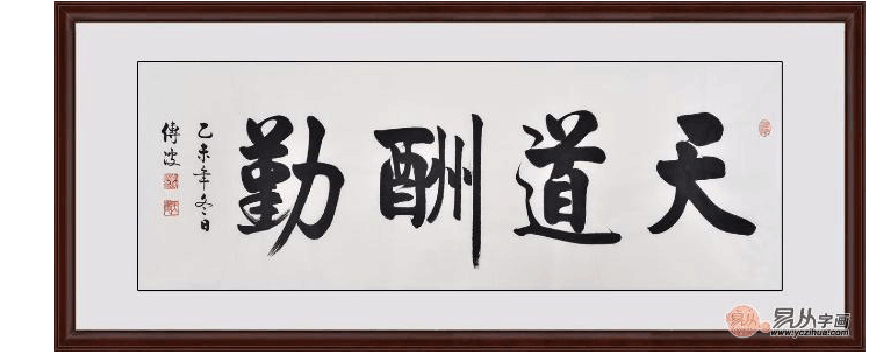 天道酬勤
乙未年冬日
傅波
易从字画
www.yczihua.com